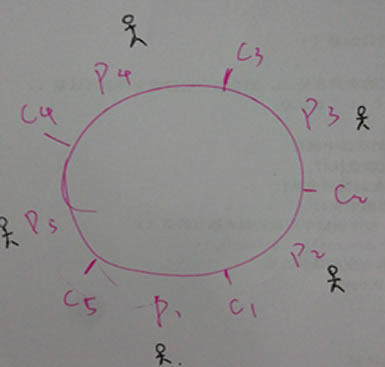 C3
P4
P3
C4
C2
P5
P2
C5
P1
C1